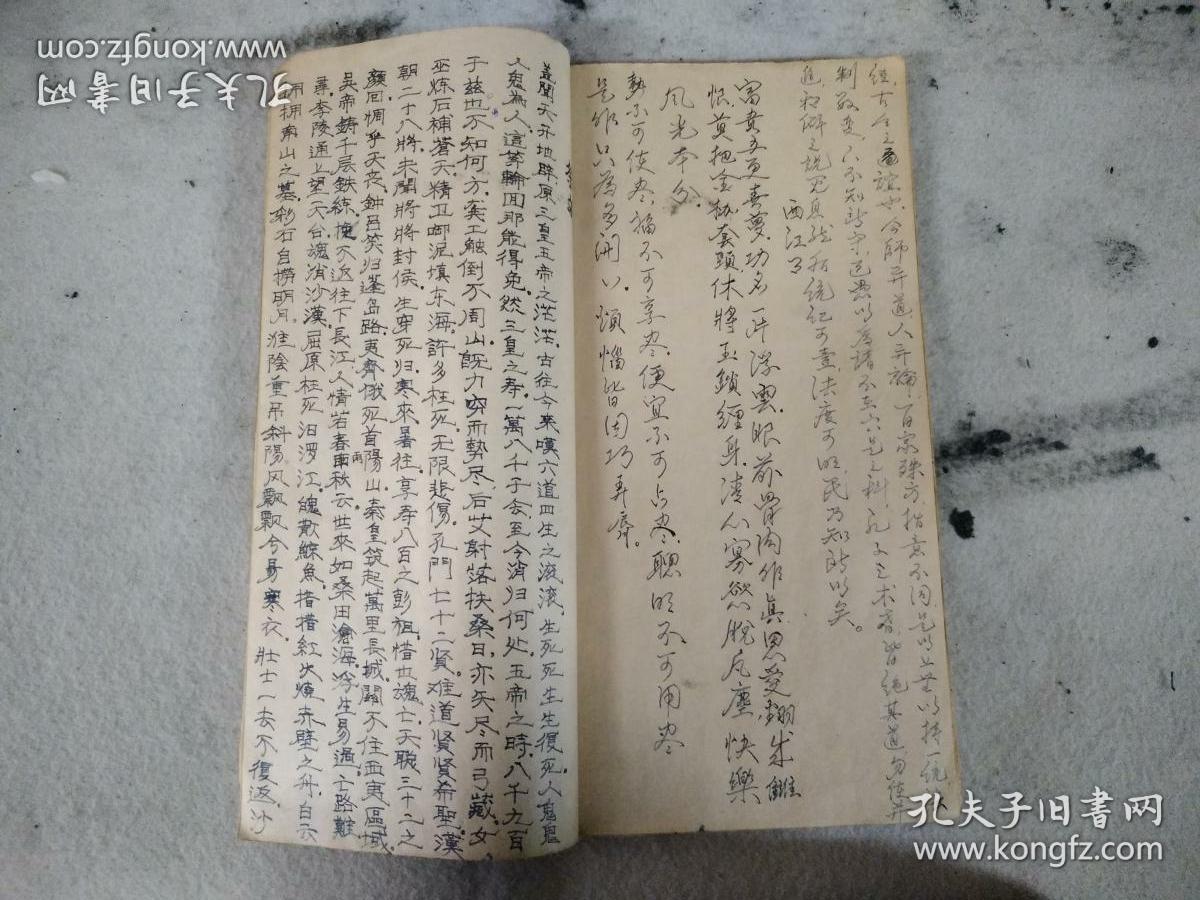 經古今之通誼也今師異道人異論百家殊方指意不同是以上無以持一統
制數變下不知所守臣愚以為諸不在六藝之科孔子之术者皆絕其道勿使并
進邪僻之說息然后統紀可壹法度可明民乃知所以矣。
西江月
富貴五更春夢功名一片浮雲眼前骨肉作真恩愛翻成讎
恨莫把金枷套頭休將玉鎖纏身清心寡慾脫凡塵快樂
風光本分。
勢不可使尽福不可享尽便宜不可占尽聰明不可用尽
是非只為多開口煩惱皆因巧弄唇。
盖聞天开地辟原三皇五帝之茫茫古往今来嘆六道四生之滚滚生死死生生復死人鬼鬼
人鬼為人這等輪回那能得免然三皇之寿一萬八千于玄至今消归何处五帝之時八千九百
于兹也不知何方共工触倒不周山既力穷而勢尽后艾射落扶桑日亦矢尽而弓藏女
巫炼石補蒼天精卫啣泥填东海許多枉死无限悲傷孔門七十二贤难道贤贤希聖漢
朝二十八將未聞將將封侯生穿死归寒來暑往享寿八百之彭祖惜也魂亡天聪三十二之
顏回惆乎天丧鈡吕笑归蓬岛路夷齊俄死首陽山秦皇筑起萬里長城關不住西夷區域
吳帝鋳千层鉄練挽不返往下長江人情若春雨秋云世來如桑田滄海浮生易過亡路難
尋李陵通上望天台魂消沙漠屈原枉死汨罗江魄散鯨魚措措紅火煉赤壁之舟白云
山之墓彩石自撈明月淮陰重吊斜陽风飄飄兮易寒衣壯士一去不復返沙
孔夫子旧书网
www.kongfz.com
孔夫子旧书网
www.kongfz.com